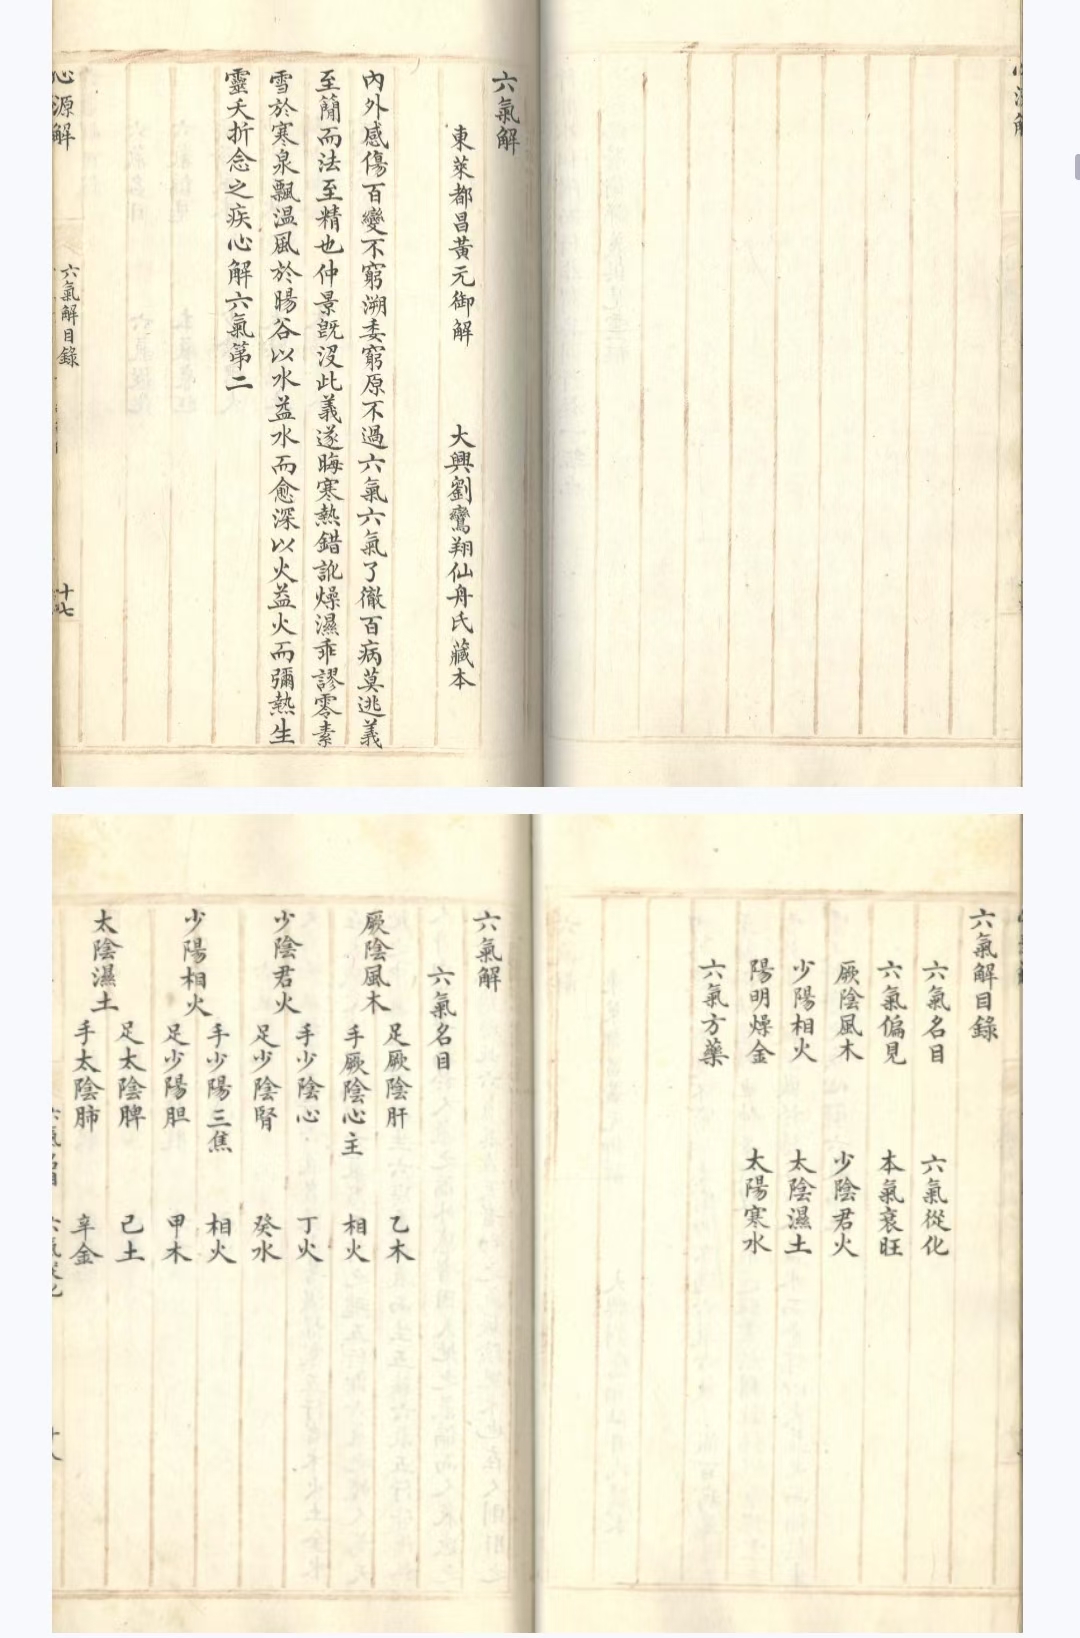 六氣解
東萊都昌黃元御解　大興劉鸞翔仙舟氏藏本
內外感傷百變不窮溯委窮原不過六氣六氣了徹百病莫逃義
至簡而法至精也仲景旣沒此義遂晦寒熱錯訛燥濕乖謬零素
雪於寒泉飄温風於暘谷以水益水而愈深以火益火而彌熱生
靈夭折念之疾心解六氣第二
心源解　六氣解目錄　十七
六氣解目錄
六氣名目　六氣從化
六氣偏見　本氣衰旺
厥陰風木　少陰君火
少陽相火　太陰濕土
陽明燥金　太陽寒水
六氣方藥
六氣解
六氣名目
厥陰風木
足厥陰肝　乙木
手厥陰心主　相火
少陰君火
手少陰心　丁火
足少陰腎　癸水
少陽相火
手少陽三焦　相火
足少陽胆　甲木
太陰濕土
足太陰脾　己土
手太陰肺　辛金